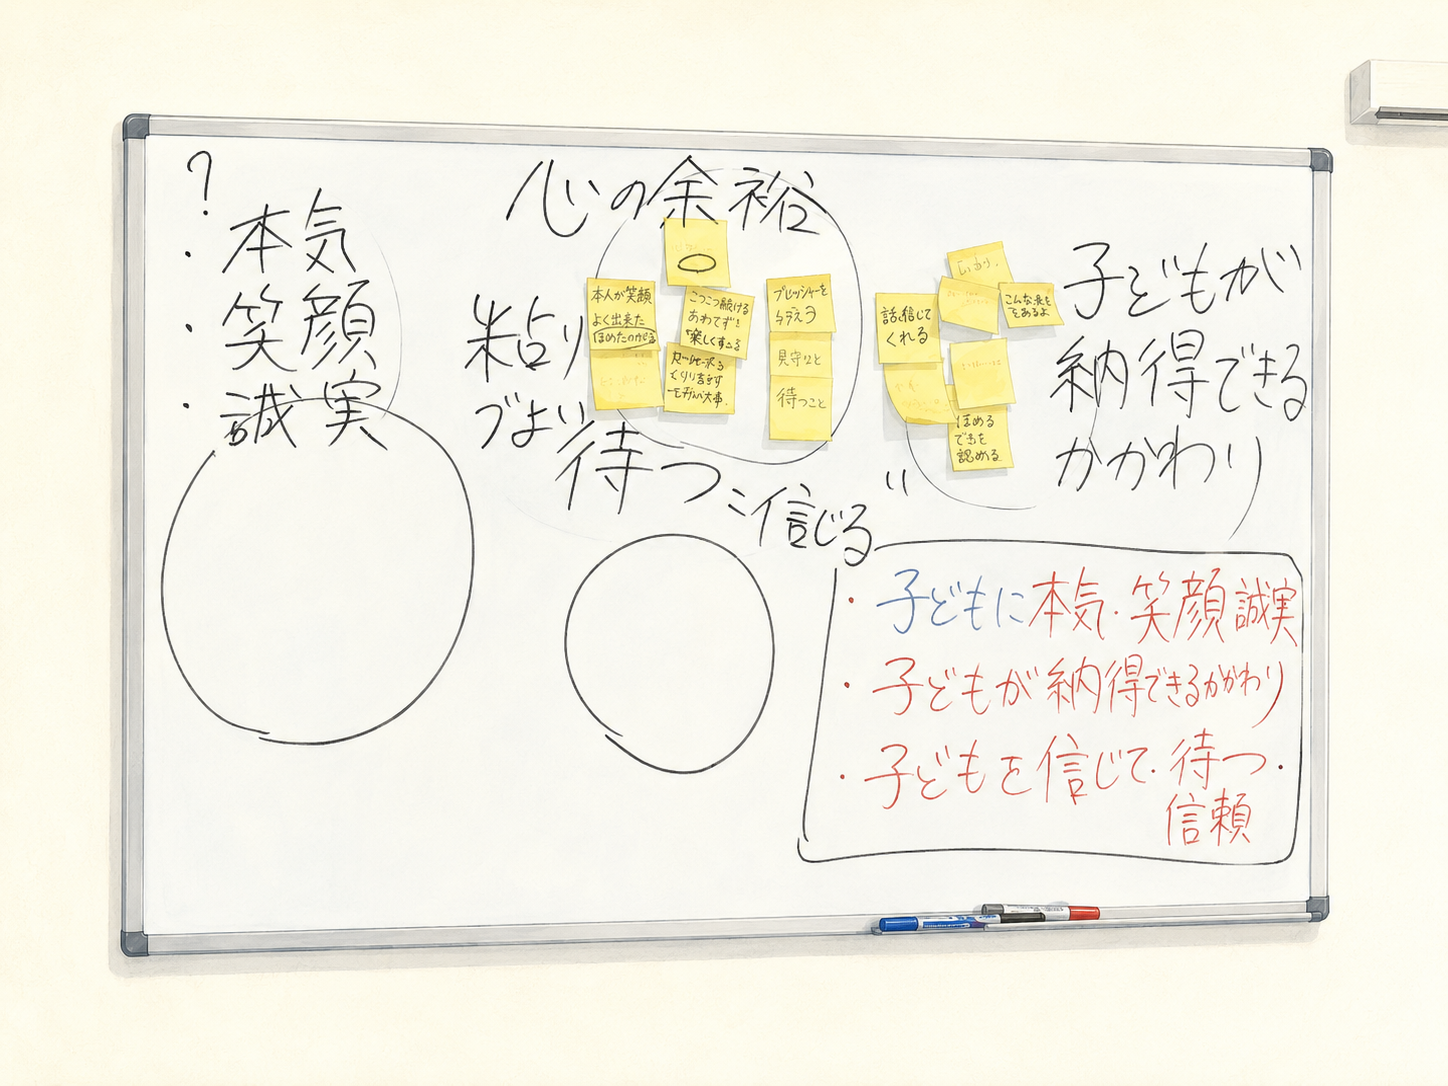 ?
・本気
・笑顔
・誠実
心の余裕
粘り
づよい
待つ
=信じる
本人が笑顔
よく出来た
ほめたのがる
こつこつ続ける
あわてず
楽しくする
プレッシャーを
与える
見守ると
待つこと
話を信じて
くれる
こんな長を
あるよ
ほめる
認める
子どもが
納得できる
かかわり
・子どもに本気・笑顔 誠実
・子どもが納得できるかかわり
・子どもを信じて・待つ・
信頼